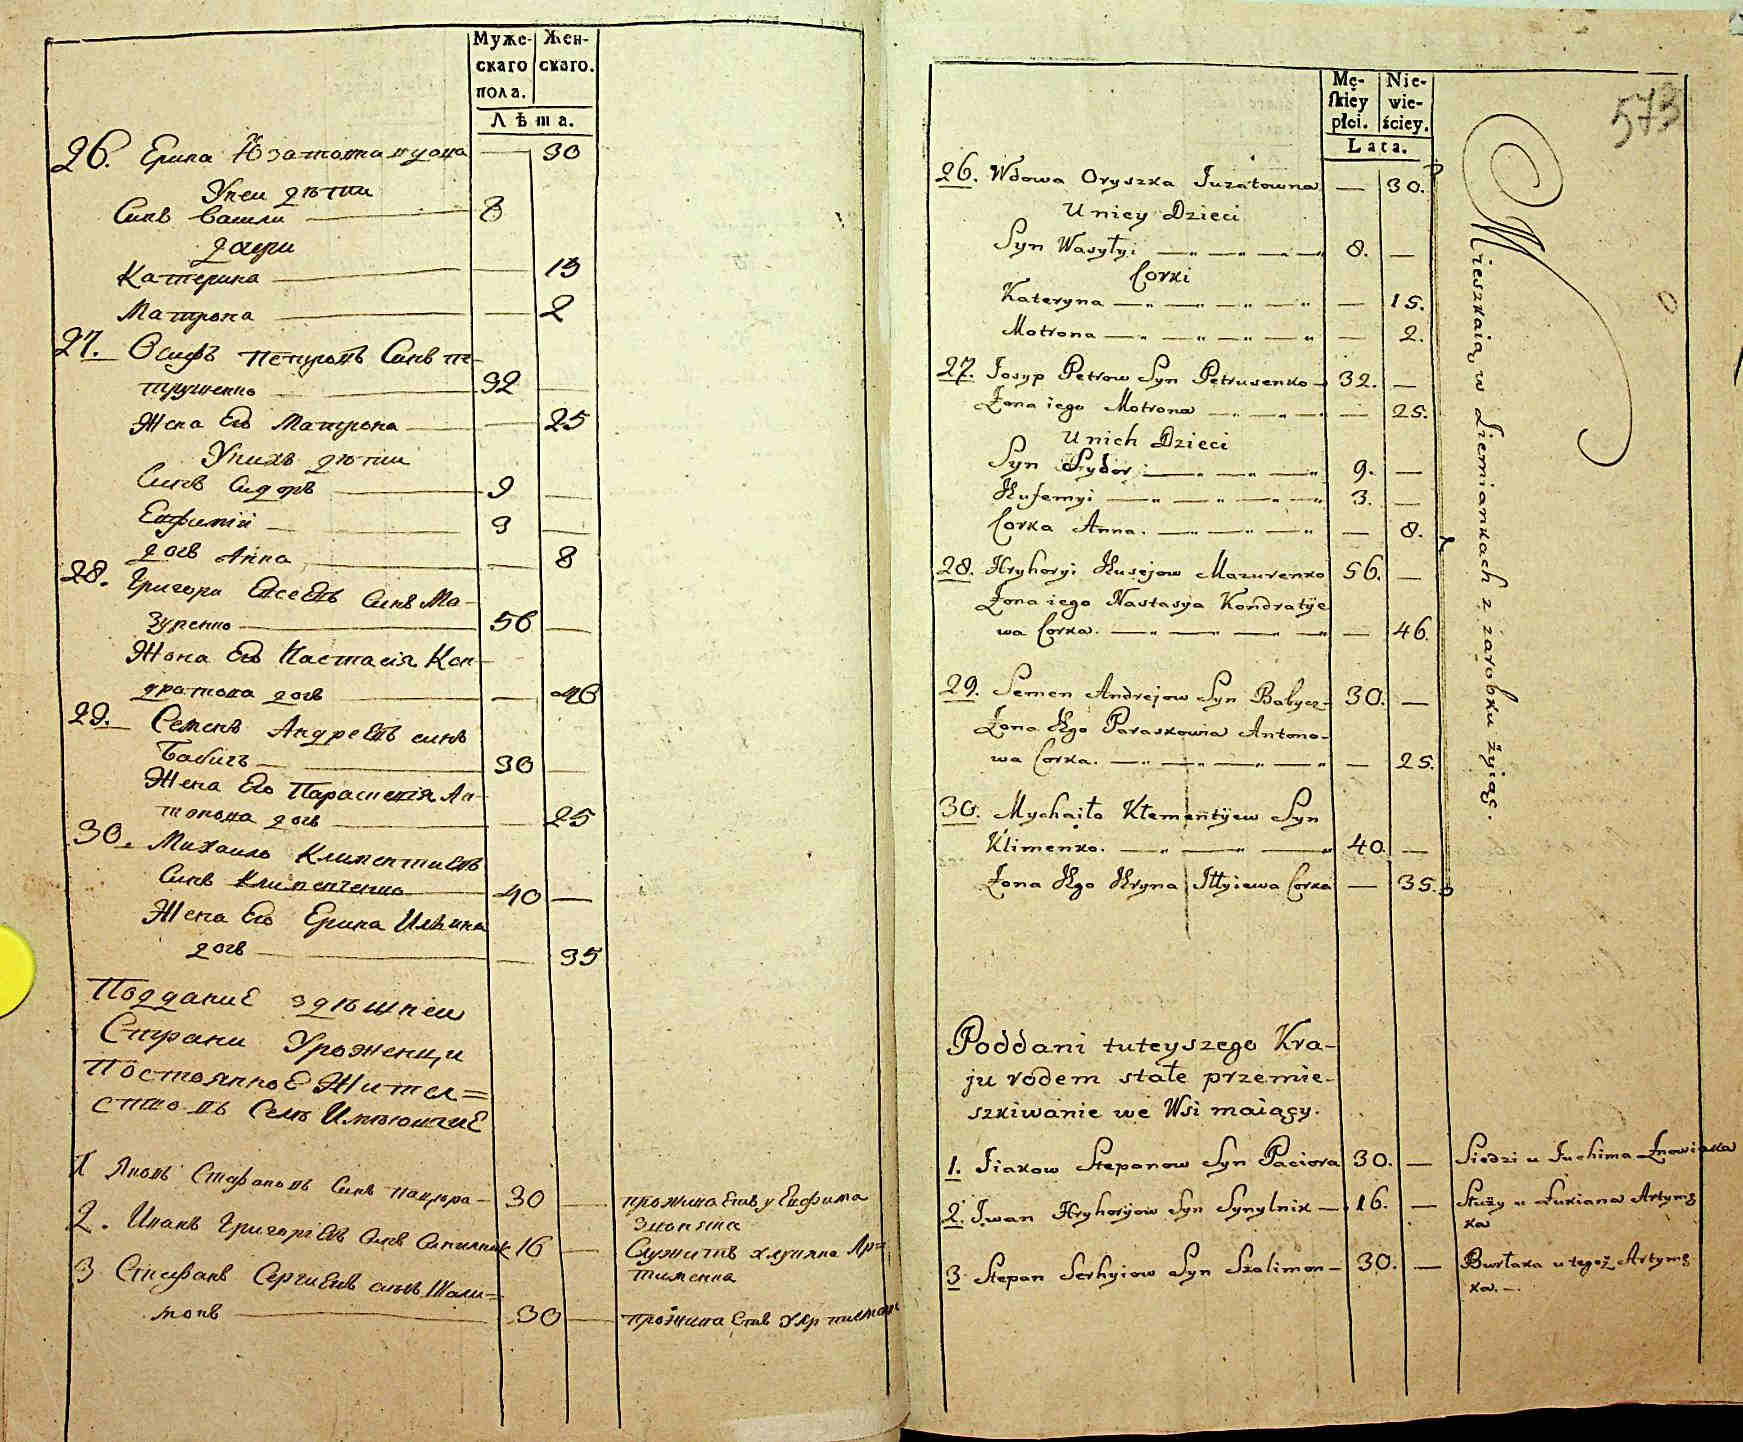 Муже- Жен-
скаго скаго.
пола.
Лѣта.
26. Ерина — 30
Унеи дѣти
Синъ Васили — 8
дочери
Катерина — 15
Матрона — 2
27. Осифъ Петровъ Синъ Пе-
трушенко — 32 —
Жена Его Матрона — 25
Унихъ дѣти
Синъ Сидоръ — 9 —
Евфимій — 3 —
дочь Анна — 8
28. Григори Евсеевъ Синъ Ма-
зуренко — 56 —
Жона Его Настасія Кон-
дратова дочь — 46
29. Семенъ Андреевъ синъ
Бабичъ — 30 —
Жена Его Параскевія Ан-
тонова дочь — 25
30. Михаило Климентиевъ
Синъ Клименченко — 40 —
Жена Его Ерина Илѣина
дочь — 35
Подданиє здѣшнеи
Страни Уроженци
Постоянноє Жител=
ство въ Селѣ Имѣющиє
1 Яковъ Стефановъ Синъ Пацюра — 30 — проживаєтъ у Евфима
2. Иванъ Григориєвъ Синъ Синилник 16 — Служитъ Ар=
тименка
3 Стефанъ Сергиєвъ синъ Шали=
монъ — 30 — проживаєтъ
573
Mę- Nie-
skiey wie-
płci. ściey.
Lata.
26. Wdowa Oryszka Juzatowna — 30.
U niey Dzieci
Syn Wasyłyi — „ — „ — 8. —
Corki
Kateryna — „ — „ — 15.
Motrona — „ — „ — 2.
27. Josyp Petrow Syn Petrusenko — 32. —
Żona iego Motrona — „ — 25.
U nich Dzieci
Syn Sydor — „ — „ 9. —
Jufemyi — „ — „ 3. —
Corka Anna. — „ — „ — 8.
28. Hryhoryi Jusejow Mazurenko 56. —
Żona iego Nastasya Kondratye
wa Corka. — „ — „ — 46.
29. Semen Andrejow Syn Babycz- 30. —
Żona Jego Paraskowia Antono-
wa Corka. — „ — „ — 25.
30. Mychaiło Kłementyew Syn
Klimenko. — „ — „ 40. —
Żona Jego Jryna Iłłyiewa Corka — 35.
Mieszkaią w Ziemiankach z zarobku żyiąc.
Poddani tuteyszego Kra-
ju rodem stałe przemie-
szkiwanie we Wsi maiący.
1. Jiakow Stepanow Syn Paciora 30. — Siedzi u Juchima
2. Jwan Hryhoryow Syn Synylnik — 16. — Służy u Łukiana Artymę
ka
3. Stepan Serhyiow Syn Szalimon — 30. — Burłaka u tegoż Artymę
ka. —